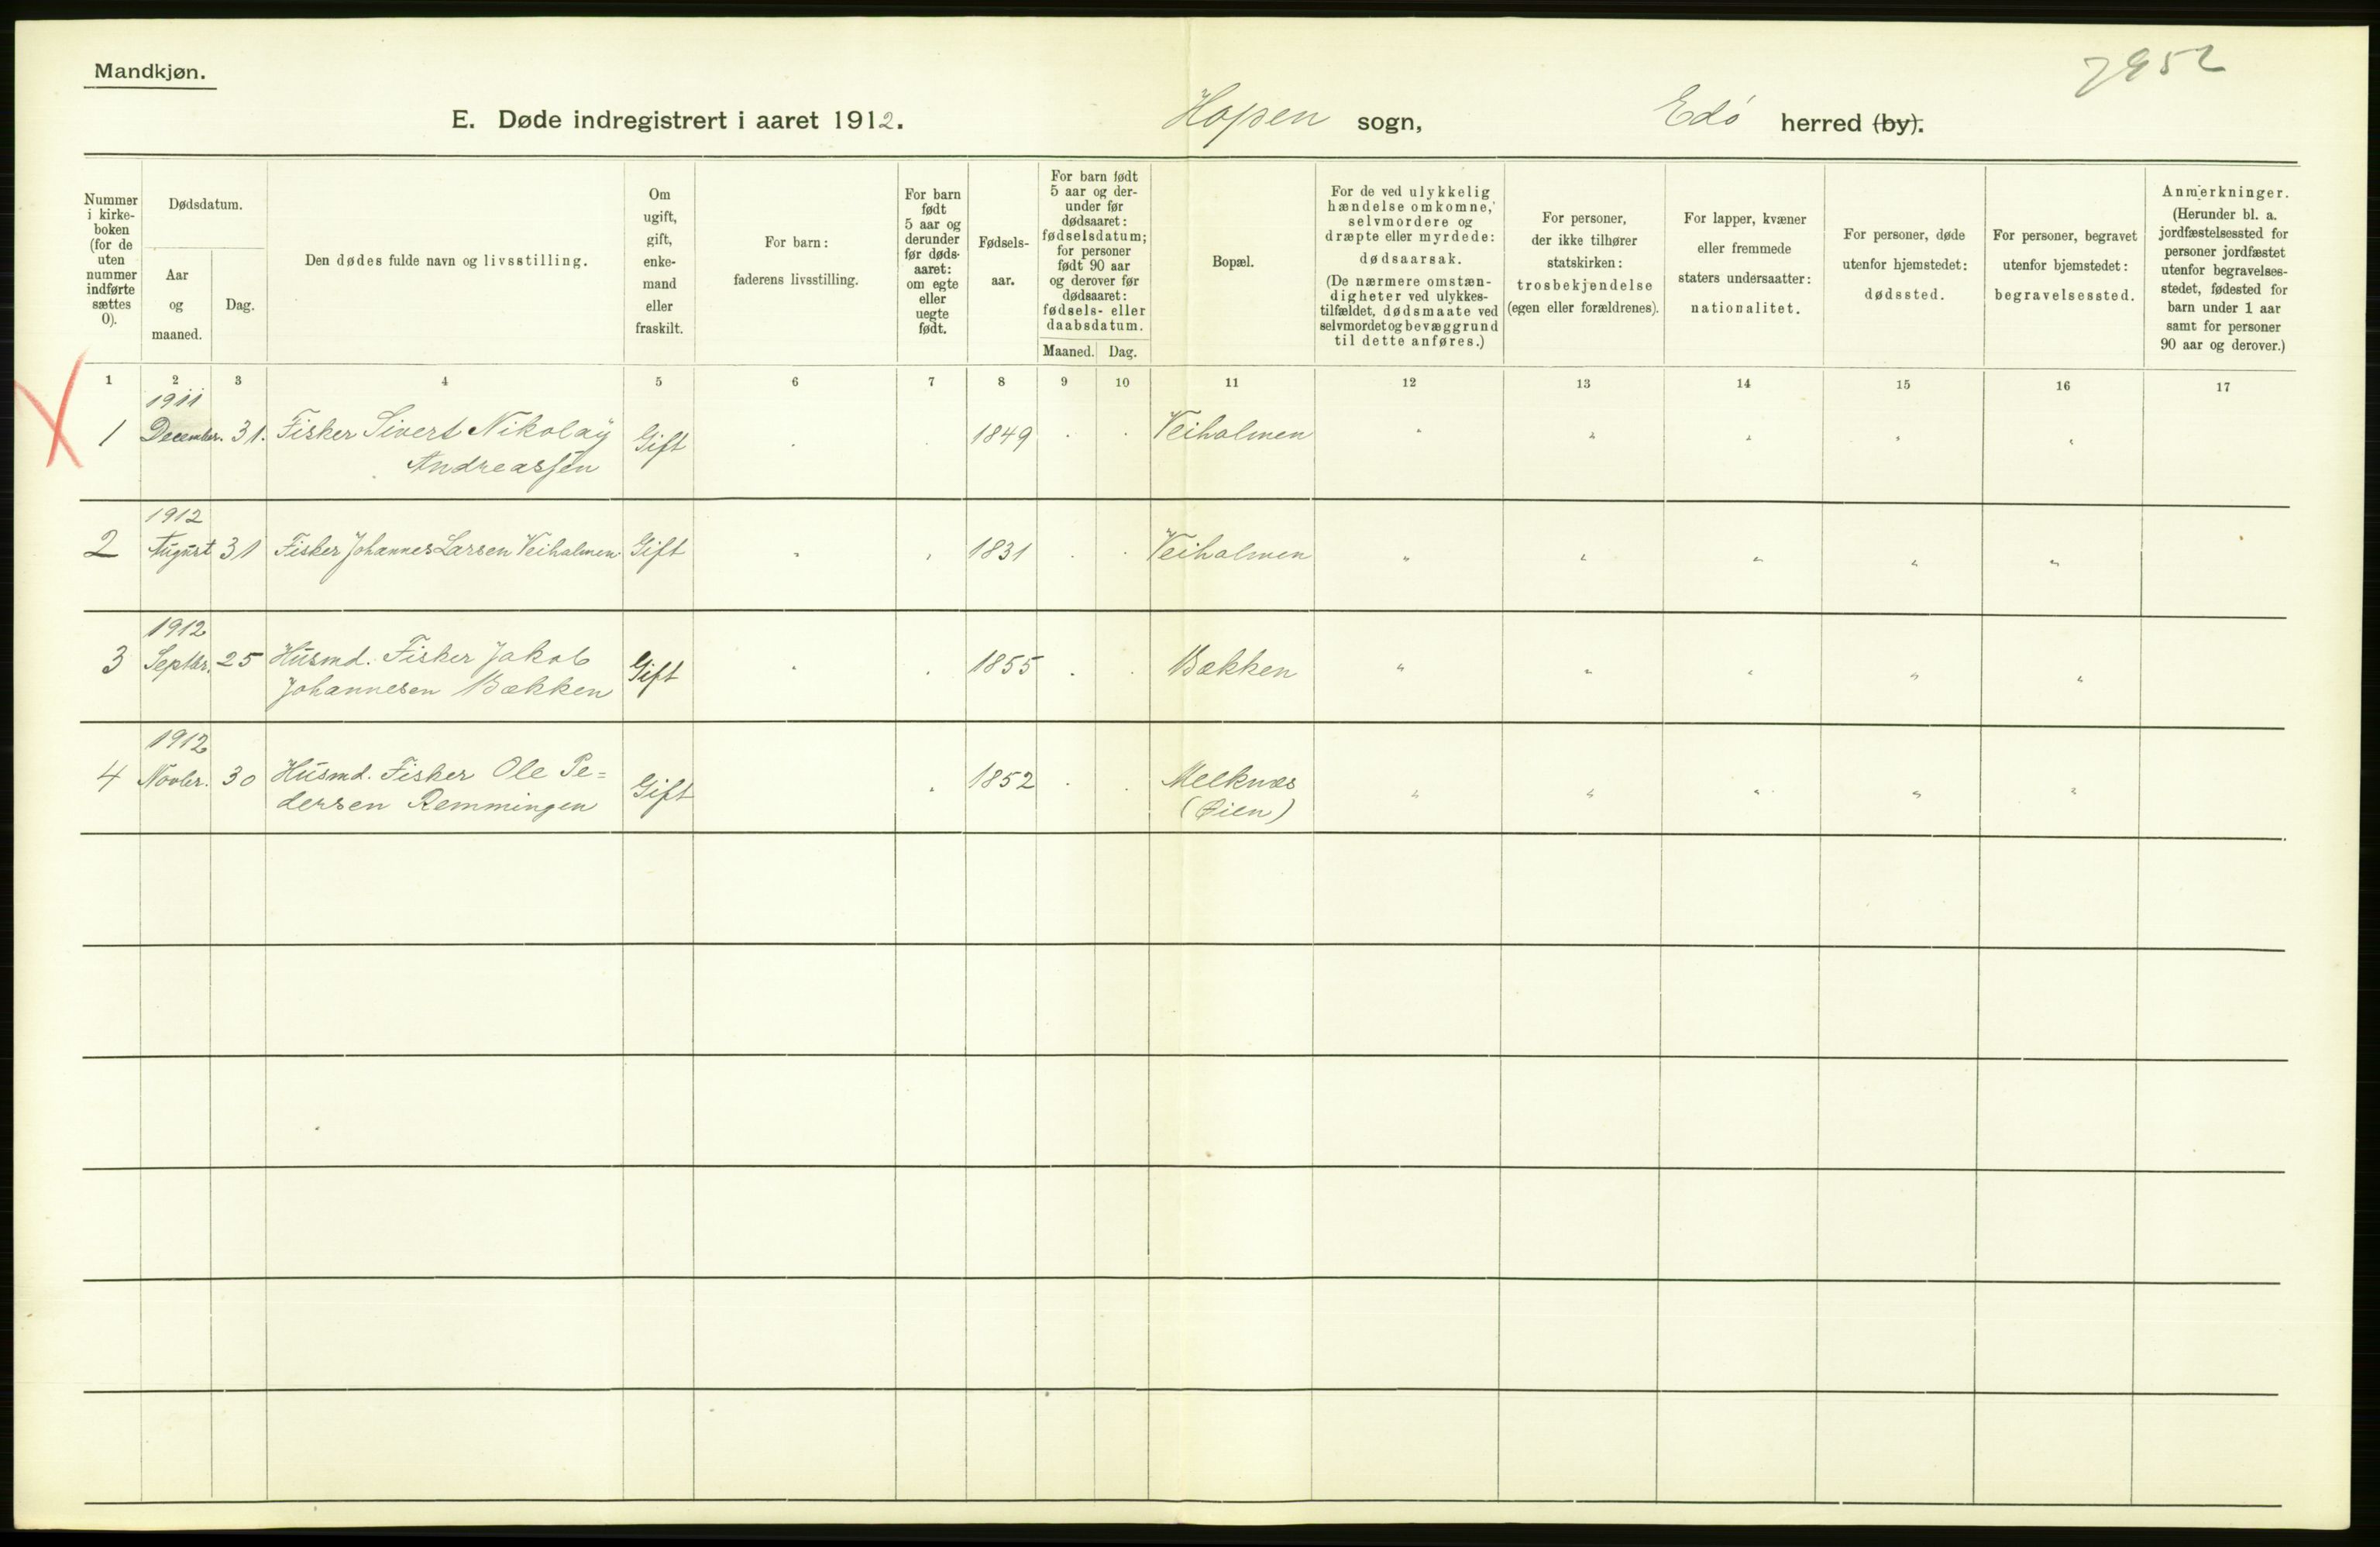 Mandkjøn.
7952
E. Døde indregistrert i aaret 1912. Hopen sogn, Edö herred (by).
Nummer i kirke-boken (for de uten nummer indførte sættes 0).
Dødsdatum.
Aar og maaned.
Dag.
Den dødes fulde navn og livsstilling.
Om ugift, gift, enke-mand eller fraskilt.
For barn: faderens livsstilling.
For barn født 5 aar og derunder før døds-aaret: om egte eller uegte født.
Fødsels-aar.
For barn født 5 aar og der-under før dødsaaret: fødselsdatum; for personer født 90 aar og derover før dødsaaret: fødsels- eller daabsdatum.
Maaned. Dag.
Bopæl.
For de ved ulykkelig hændelse omkomne, selvmordere og dræpte eller myrdede: dødsaarsak.
(De nærmere omstæn-digheter ved ulykkes-tilfældet, dødsmaate ved selvmordet og bevæggrund til dette anføres.)
For personer, der ikke tilhører statskirken: trosbekjendelse (egen eller forældrenes).
For lapper, kvæner eller fremmede staters undersaatter: nationalitet.
For personer, døde utenfor hjemstedet: dødssted.
For personer, begravet utenfor hjemstedet: begravelsessted.
Anmerkninger.
(Herunder bl. a. jordfæstelsessted for personer jordfæstet utenfor begravelses-stedet, fødested for barn under 1 aar samt for personer 90 aar og derover.)
1 2 3 4 5 6 7 8 9 10 11 12 13 14 15 16 17
1911
1 December. 31. Fisker Sivert Nikolay Gift 1849 Veiholmen
Andreassen
1912
2 August 31 Fisker Johannes Larsen Veiholmen Gift 1831 Veiholmen
1912
3 Septbr. 25 Husmd. Fisker Jakob Gift 1855 Bækken
Johannesen Bækken
1912
4 Novbr. 30 Husmd. Fisker Ole Pe= Gift 1852 Melknæs
dersen Remmingen (Øien)